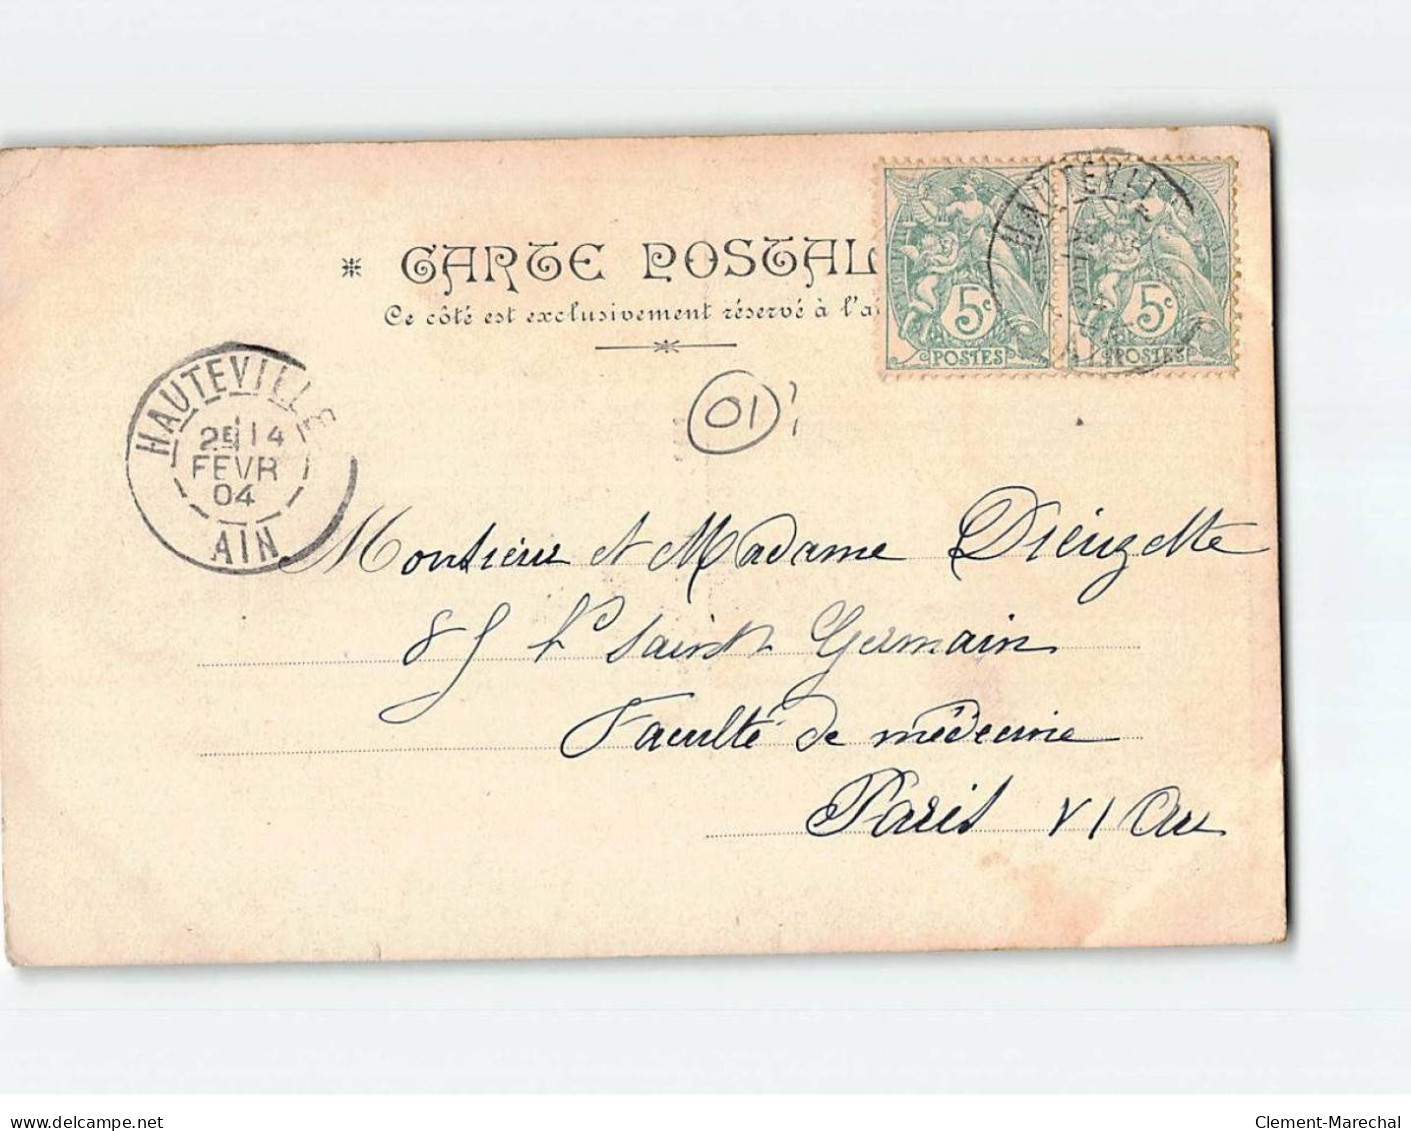 CARTE POSTAL
Ce côté est exclusivement réservé à l'a
5c
POSTES
5c
POSTES
HAUTEVIL
AIN
HAUTEVILLE
14
FEVR
04
AIN
01
Monsieur et Madame Dieuzette
85 Bd Saint Germain
Faculté de médecine
Paris VI Arr
www.delcampe.net
Clement-Marechal